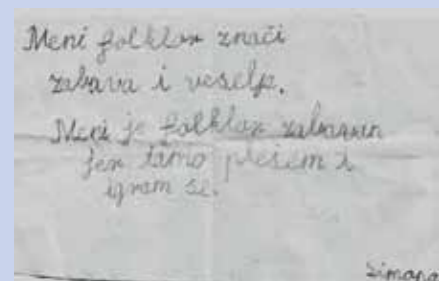 Meni folklor znači
zabava i veselje.
Meni je folklor zabavan
jer tamo plešem i
igram se.
Simona